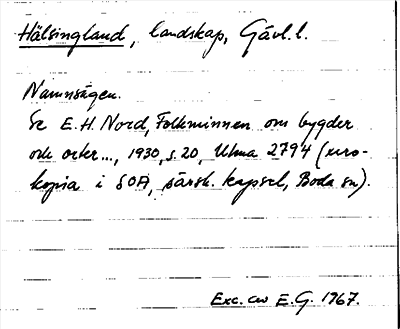 Hälsingland, landskap, Gävl. l.
Namnsägen.
Se E. H. Nord, Folkminnen om bygder
och orter..., 1930, s. 20, Ulma 2794 (xero-
kopia i SOA, särsk. kapsel, Boda sn).
Exc. av E. G. 1967.